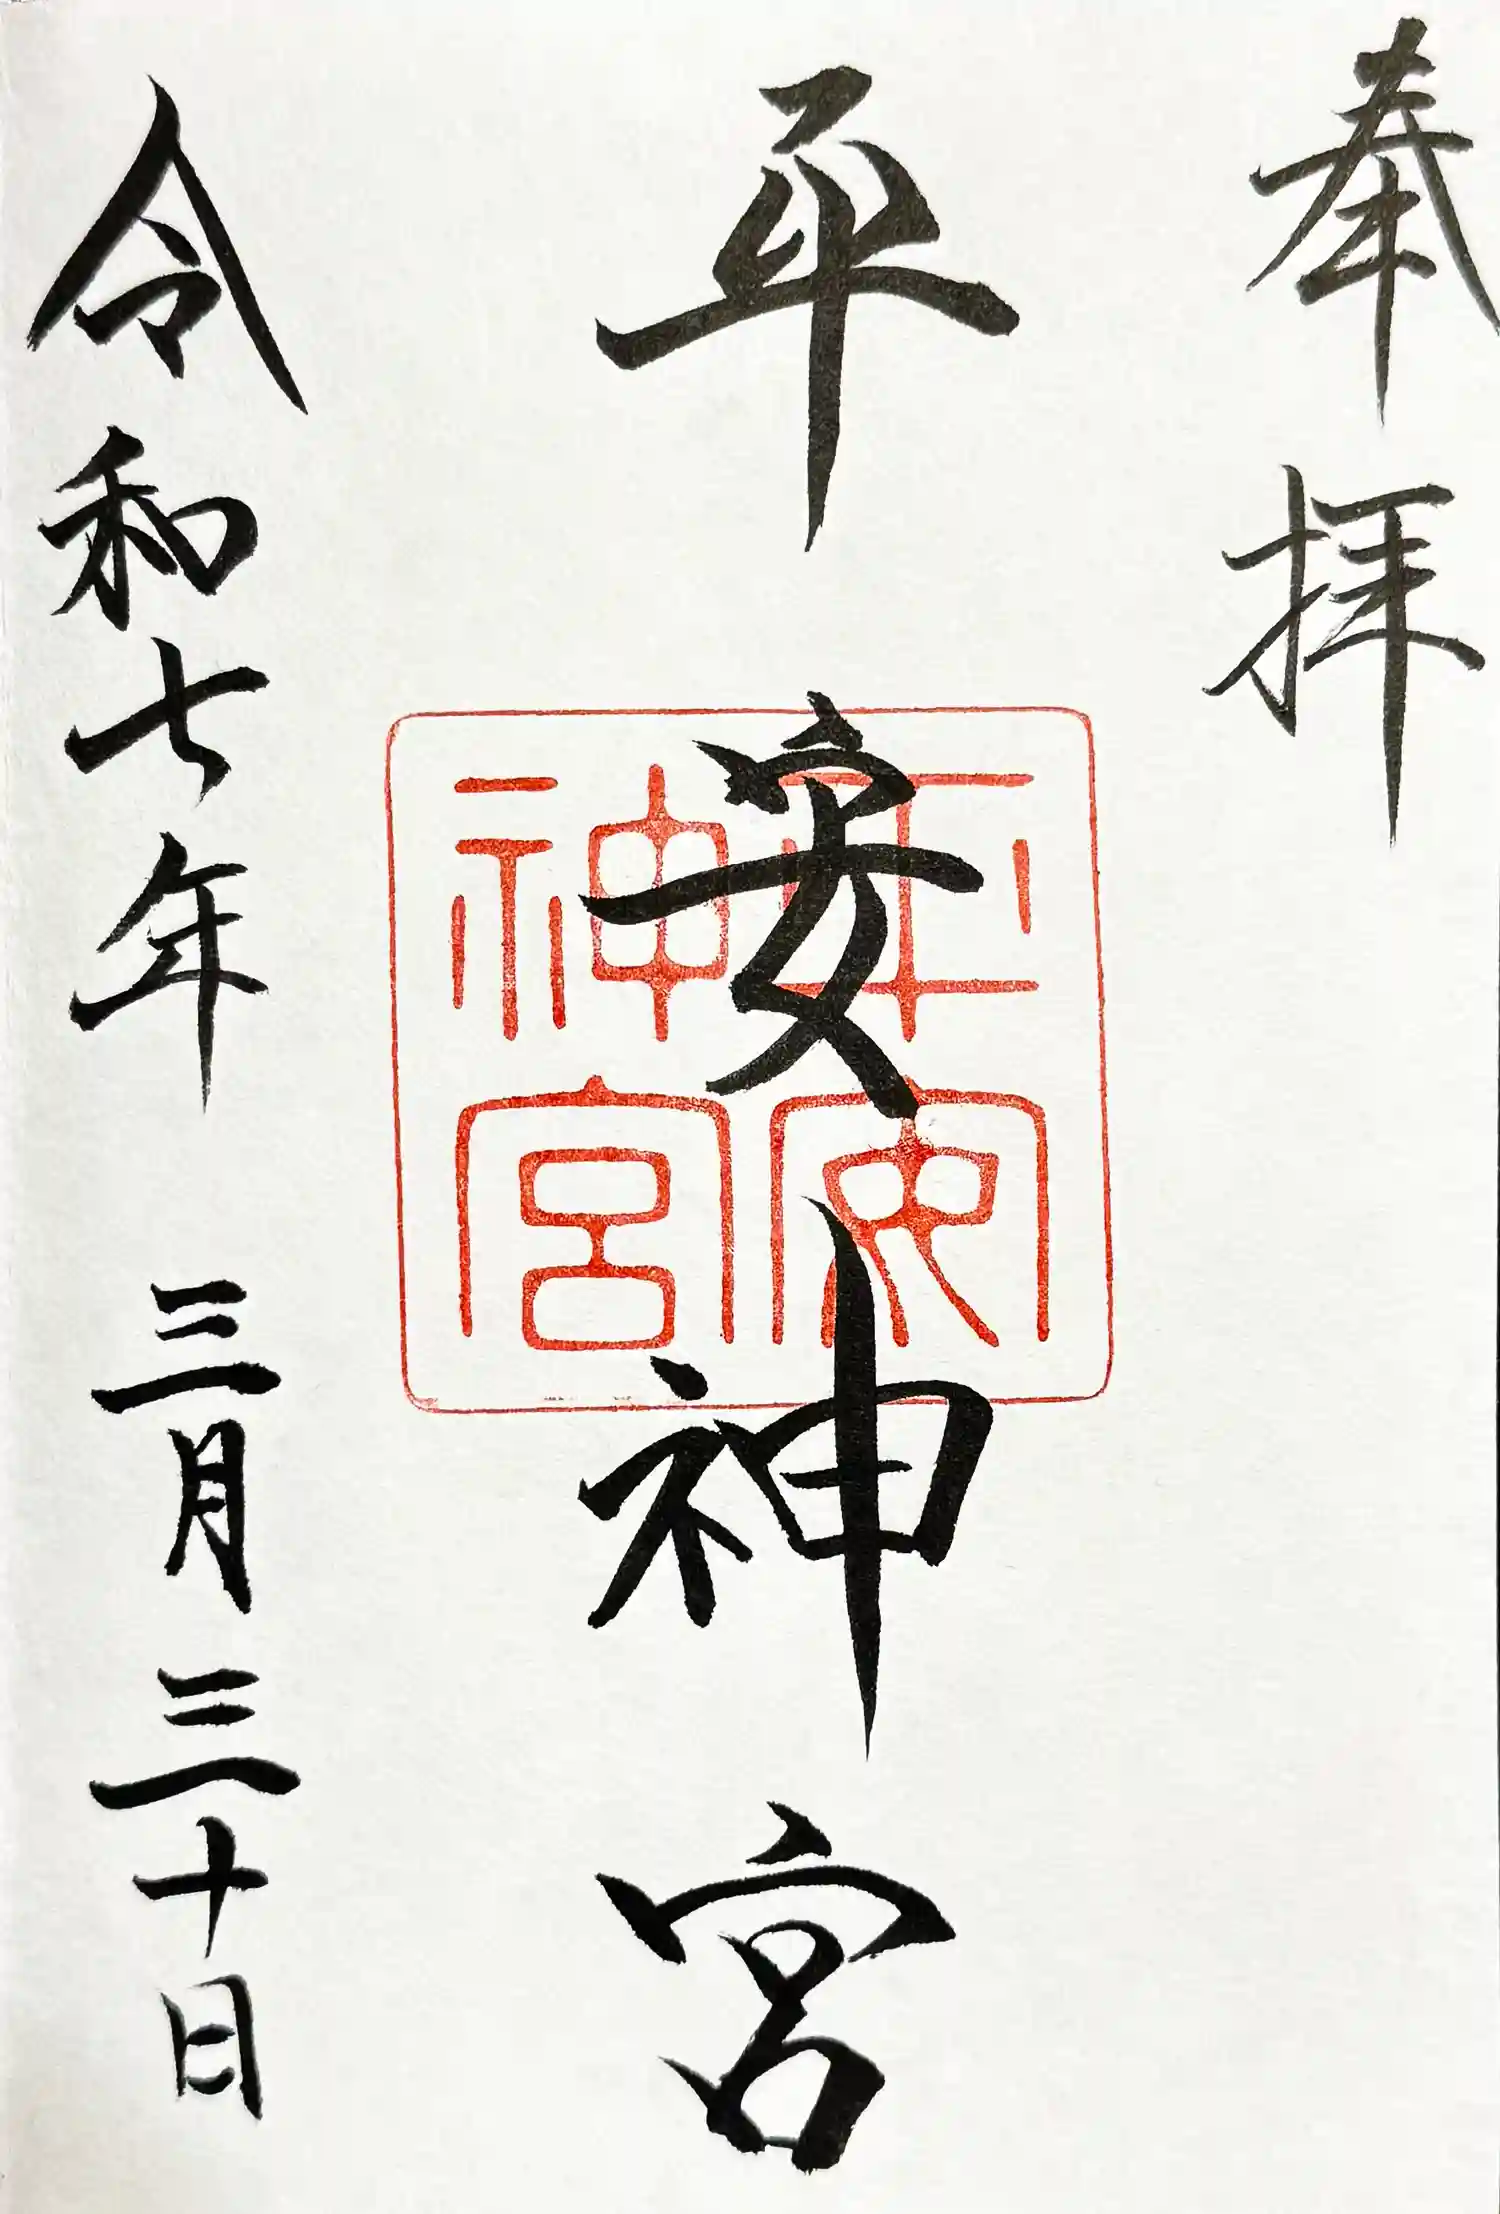 奉拝
平安神宮
平安
神宮
令和七年 三月三十日